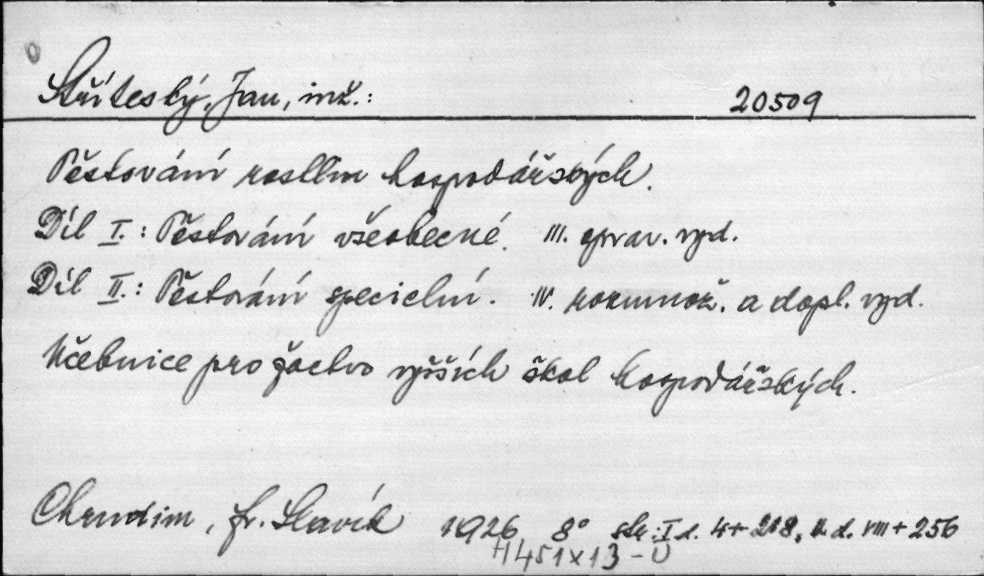 Stříteský, Jan, inž.: 20509
Pěstování rostlin hospodářských.
Díl I.: Pěstování všeobecné. III. oprav. vyd.
Díl II.: Pěstování specielní. IV. rozmnož. a dopl. vyd.
Učebnice pro žactvo vyšších škol hospodářských.
Chrudim, Fr. Slavík 1926 8° str.: I d. 4+218, II. d. VIII + 256
H451x13-U